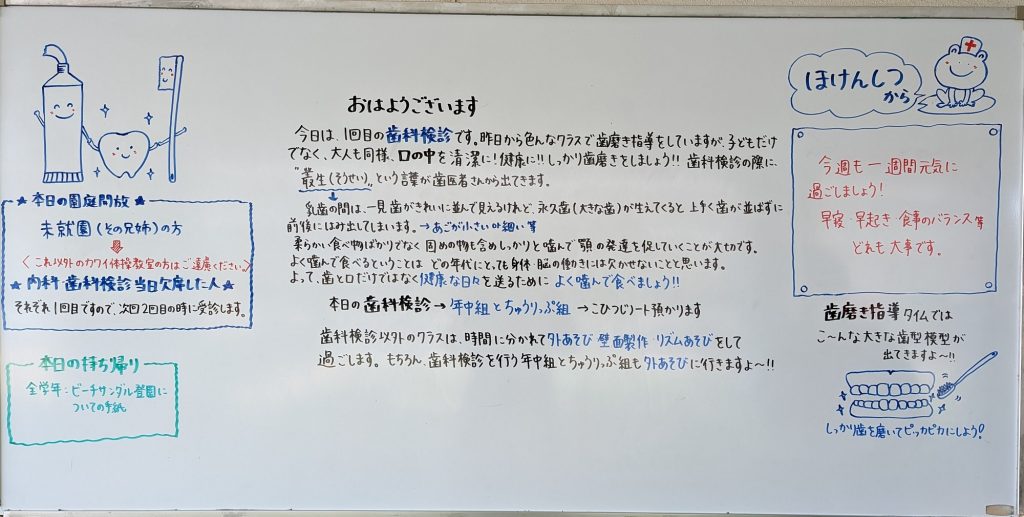 ★本日の園庭開放★
未就園(その兄姉)の方
〈これ以外のカワイ体操教室の方はご遠慮ください。〉
★内科・歯科検診当日欠席した人★
それぞれ1回目ですので、次回2回目の時に受診します。
本日の持ち帰り
全学年:ビーチサンダル登園に
ついての手紙
おはようございます
今日は、1回目の歯科検診です。昨日から色んなクラスで歯磨き指導をしていますが、子どもだけ
でなく、大人も同様、口の中を清潔に!健康に!!しっかり歯磨きをしましょう!!歯科検診の際に、
"叢生(そうせい)"という言葉が歯医者さんから出てきます。
乳歯の間は、一見歯がきれいに並んで見えるけれど、永久歯(大きな歯)が生えてくると上手く歯が並ばずに
前後にはみ出してしまいます。→あごが小さいor細い等
柔らかい食べ物ばかりでなく固めの物も含めしっかりと噛んで顎の発達を促していくことが大切です。
よく噛んで食べるということは、どの年代にとっても身体・脳の働きには欠かせないことと思います。
よって、歯と口だけではなく健康な日々を送るためによく噛んで食べましょう!!
本日の歯科検診→年中組とちゅうりっぷ組→こひつじノート預かります
歯科検診以外のクラスは、時間に分かれて外あそび・壁面製作・リズムあそびをして
過ごします。もちろん、歯科検診を行う年中組とちゅうりっぷ組も外あそびに行きますよ〜!!
ほけんしつ
から
今週も一週間元気に
過ごしましょう!
早寝・早起き・食事のバランス等
どれも大事です。
歯磨き指導タイムでは
こ〜んな大きな歯型模型が
出てきますよ〜!!
しっかり歯を磨いてピッカピカにしよう!